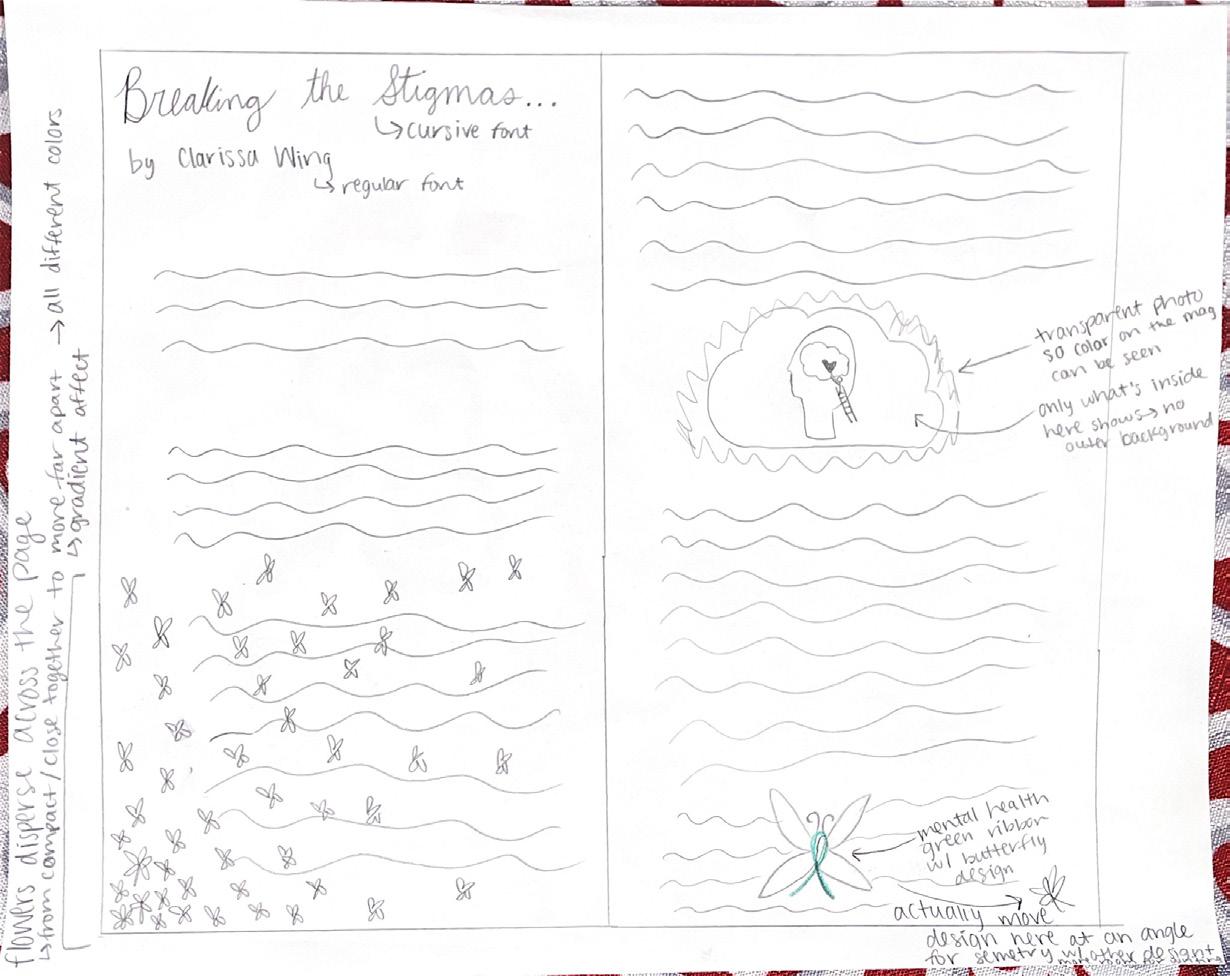 Breaking the Stigmas...
↳cursive font
by Clarissa Wing
↳regular font
flowers disperse across the page
↳from compact/close together to more far apart → all different colors
↳gradient affect
transparent photo
so color on the mag
can be seen
only what's inside
here shows→no
outer background
mental health
green ribbon
w/ butterfly
design
actually move
design here at an angle
for semetry w/ other design